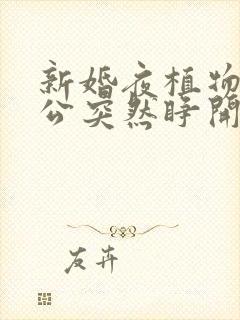 新婚夜植物
公突然睁開
友卉